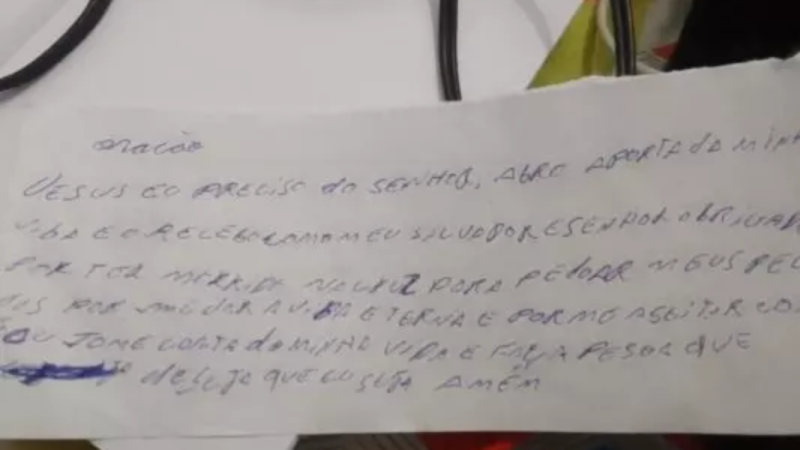 oração
JESUS EU PRECISO do SENHOR, ABRO APORTA DA MINH
VIDA E O RECEBO COMO MEU SALVADOR E SENHOR OBRIGADO
POR TER MORRIDO NA CRUZ PARA PEDOAR MEUS PEC
DOS POR ME DAR A VIDA ETERNA E POR ME ASEITAR CO
TOME CONTA da MINHA VIDA E FAÇA PESOA QUE
deseja QUE EU SEJA AMÉM